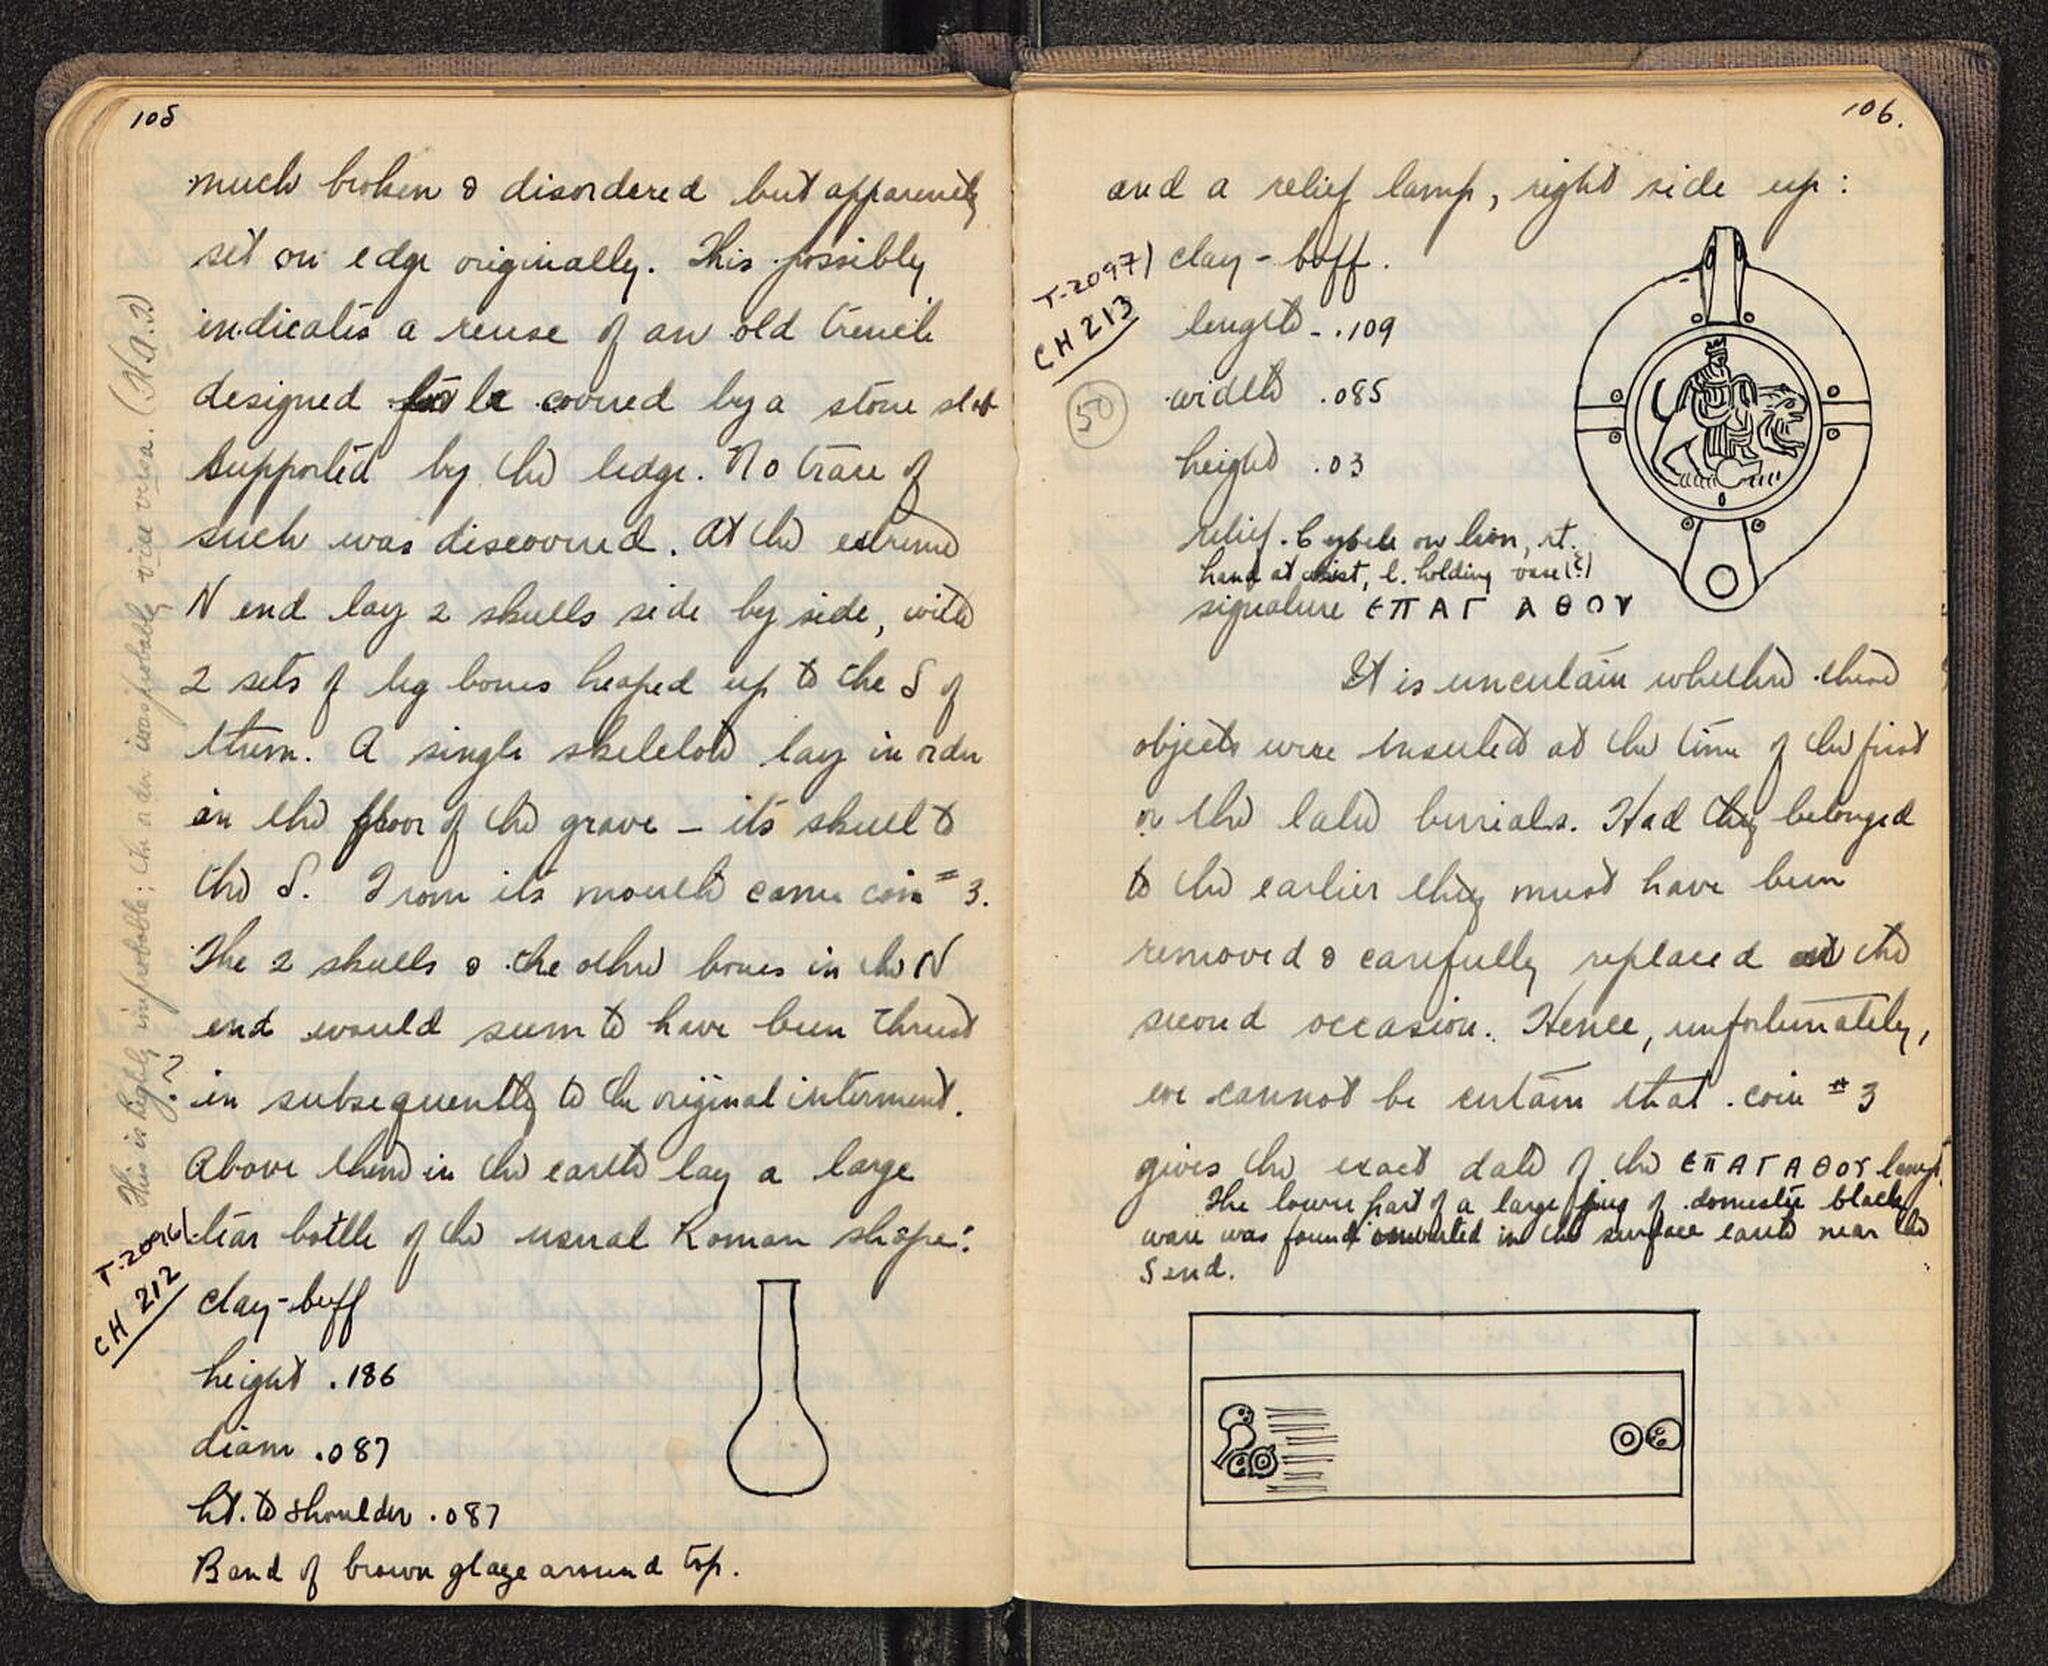 105
much broken & disordered but apparently
set on edge originally. This possibly
indicates a reuse of an old trench
designed to be covered by a stone slab
supported by the ledge. No trace of
such was discovered. At the extreme
N end lay 2 skulls side by side, with
2 sets of leg bones heaped up to the S of
them. A single skeleton lay in order
in the floor of the grave – its skull to
the S. From its mouth came coin #3.
The 2 skulls & the other bones in the N
end would seem to have been thrust
in subsequently to the original interment.
?
This is highly improbable; the order was probably vice versa. (H.A.T.)
Above them in the earth lay a large
tear bottle of the usual Roman shape:
T-2096)
CH 212
clay - buff
height .186
diam .087
ht. to shoulder .087
Band of brown glaze around top.
106.
and a relief lamp, right side up:
T-2097)
CH 213
50
clay - buff.
length - .109
width .085
height .03
relief. Cybele on lion, rt.
hand at waist, l. holding vase(?)
signature ЄΠΑΓ ΑΘΟΥ
It is uncertain whether these
objects were inserted at the time of the first
or the later burials. Had they belonged
to the earlier they must have been
removed & carefully replaced at the
second occasion. Hence, unfortunately,
we cannot be certain that coin #3
gives the exact date of the ЄΠΑΓΑΘΟΥ lamp.
The lower part of a large jug of domestic black
ware was found inverted in the surface earth near the
S end.